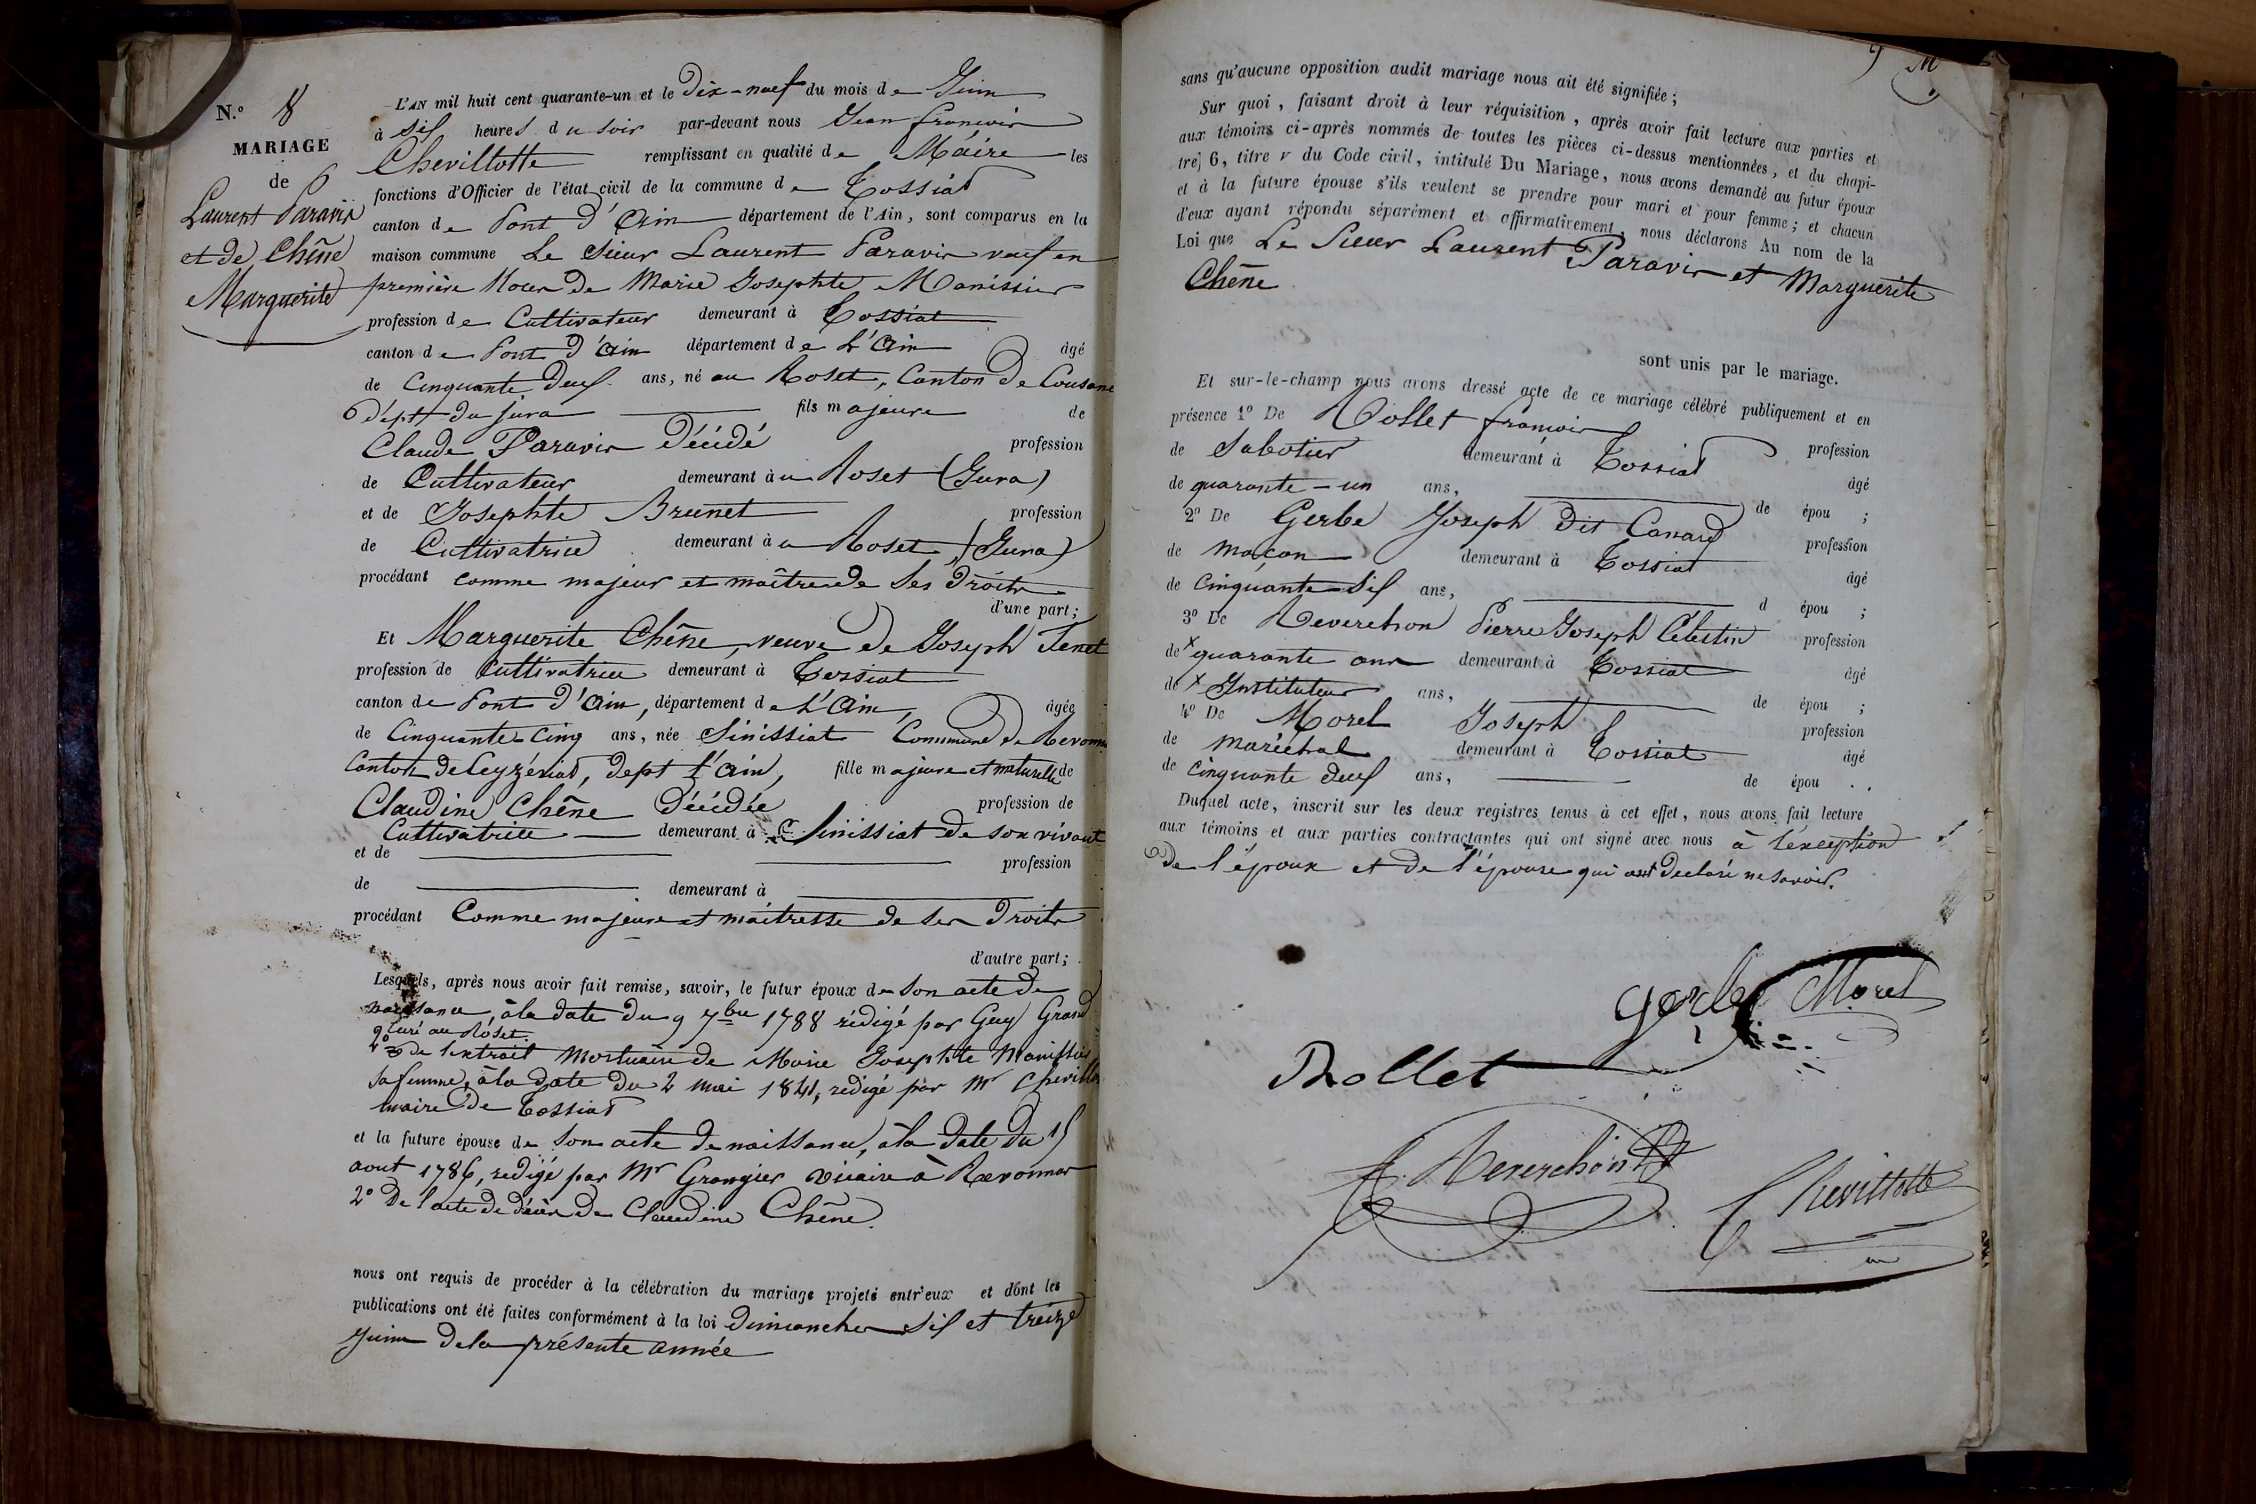 N.º 8
MARIAGE
de
Laurent Paravis
et de Chêne
Marguerite
L'AN mil huit cent quarante-un et le Dix-neuf du mois de Juin
à Six heures du soir par-devant nous Jean François
Chevillotte remplissant en qualité de Maire les
fonctions d'Officier de l'état civil de la commune de Tossiat
canton de Pont d'Ain département de l'Ain, sont comparus en la
maison commune Le Sieur Laurent Paravis veuf en
première Noces de Marie Josephte Manissier
profession de Cultivateur demeurant à Tossiat
canton de Pont d'Ain département de L'Ain âgé
de Cinquante Deux ans, né au Roset, Canton de Cousance
Dépt du Jura fils majeure de
Claude Paravis Décédé profession
de Cultivateur demeurant à u Roset (Jura)
et de Josephte Brunet profession
de Cultivatrice demeurant à u Roset (Jura)
procédant comme majeur et maître de Ses Droits
d'une part;
Et Marguerite Chêne, veuve de Joseph Tenet
profession de Cultivatrice demeurant à Tossiat
canton de Pont d'Ain, département de L'Ain, âgée
de Cinquante Cinq ans, née Sinissiat Commune de Revonnas
Canton de Ceyzériat, dept l'Ain, fille majeure et naturelle de
Claudine Chêne Décédée profession de
Cultivatrice demeurant à Sinissiat de son vivant
et de profession
de demeurant à
procédant Comme majeure et maîtresse de ses Droits
d'autre part;
Lesquels, après nous avoir fait remise, savoir, le futur époux de son acte de
naissance, à la date du 9 7bre 1788 rédigé par Guy Grand
Curé au Roset.
2º de l'extrait Mortuaire de Marie Josephte Manissier
sa femme, à la date du 2 mai 1841, rédigé par Mr Chevillotte
maire de Tossiat
et la future épouse de Son acte de naissance, à la date du 15
aout 1786, redigé par Mr Grangier Vicaire à Revonnas
2º De l'acte de décès de Claudine Chêne.
nous ont requis de procéder à la célébration du mariage projeté entr'eux et dont les
publications ont été faites conformément à la loi Dimanches Six et treize
Juin de la présente année
9
sans qu'aucune opposition audit mariage nous ait été signifiée;
Sur quoi, faisant droit à leur réquisition, après avoir fait lecture aux parties et
aux témoins ci-après nommés de toutes les pièces ci-dessus mentionnées, et du chapi-
tre 6, titre v du Code civil, intitulé Du Mariage, nous avons demandé au futur époux
et à la future épouse s'ils veulent se prendre pour mari et pour femme; et chacun
d'eux ayant répondu séparément et affirmativement, nous déclarons Au nom de la
Loi que Le Sieur Laurent Paravis et Marguerite
Chêne
sont unis par le mariage.
Et sur-le-champ nous avons dressé acte de ce mariage célébré publiquement et en
présence 1º De Rollet François profession
de Sabotier demeurant à Tossiat âgé
de quarante-un ans, de épou ;
2º De Gerbe Joseph dit Canard profession
de maçon demeurant à Tossiat âgé
de Cinquante-Six ans, d épou ;
3º De Reverchon Pierre Joseph Célestin profession
de x quarante ans demeurant à Tossiat âgé
de x Instituteur ans, de épou ;
4º De Morel Joseph profession
de Maréchal demeurant à Tossiat âgé
de Cinquante deux ans, de épou .
Duquel acte, inscrit sur les deux registres tenus à cet effet, nous avons fait lecture
aux témoins et aux parties contractantes qui ont signé avec nous à l'exception
de l'époux et de l'épouse qui ont déclaré ne savoir.
Gerbe Morel
Rollet
Reverchon
Chevillotte